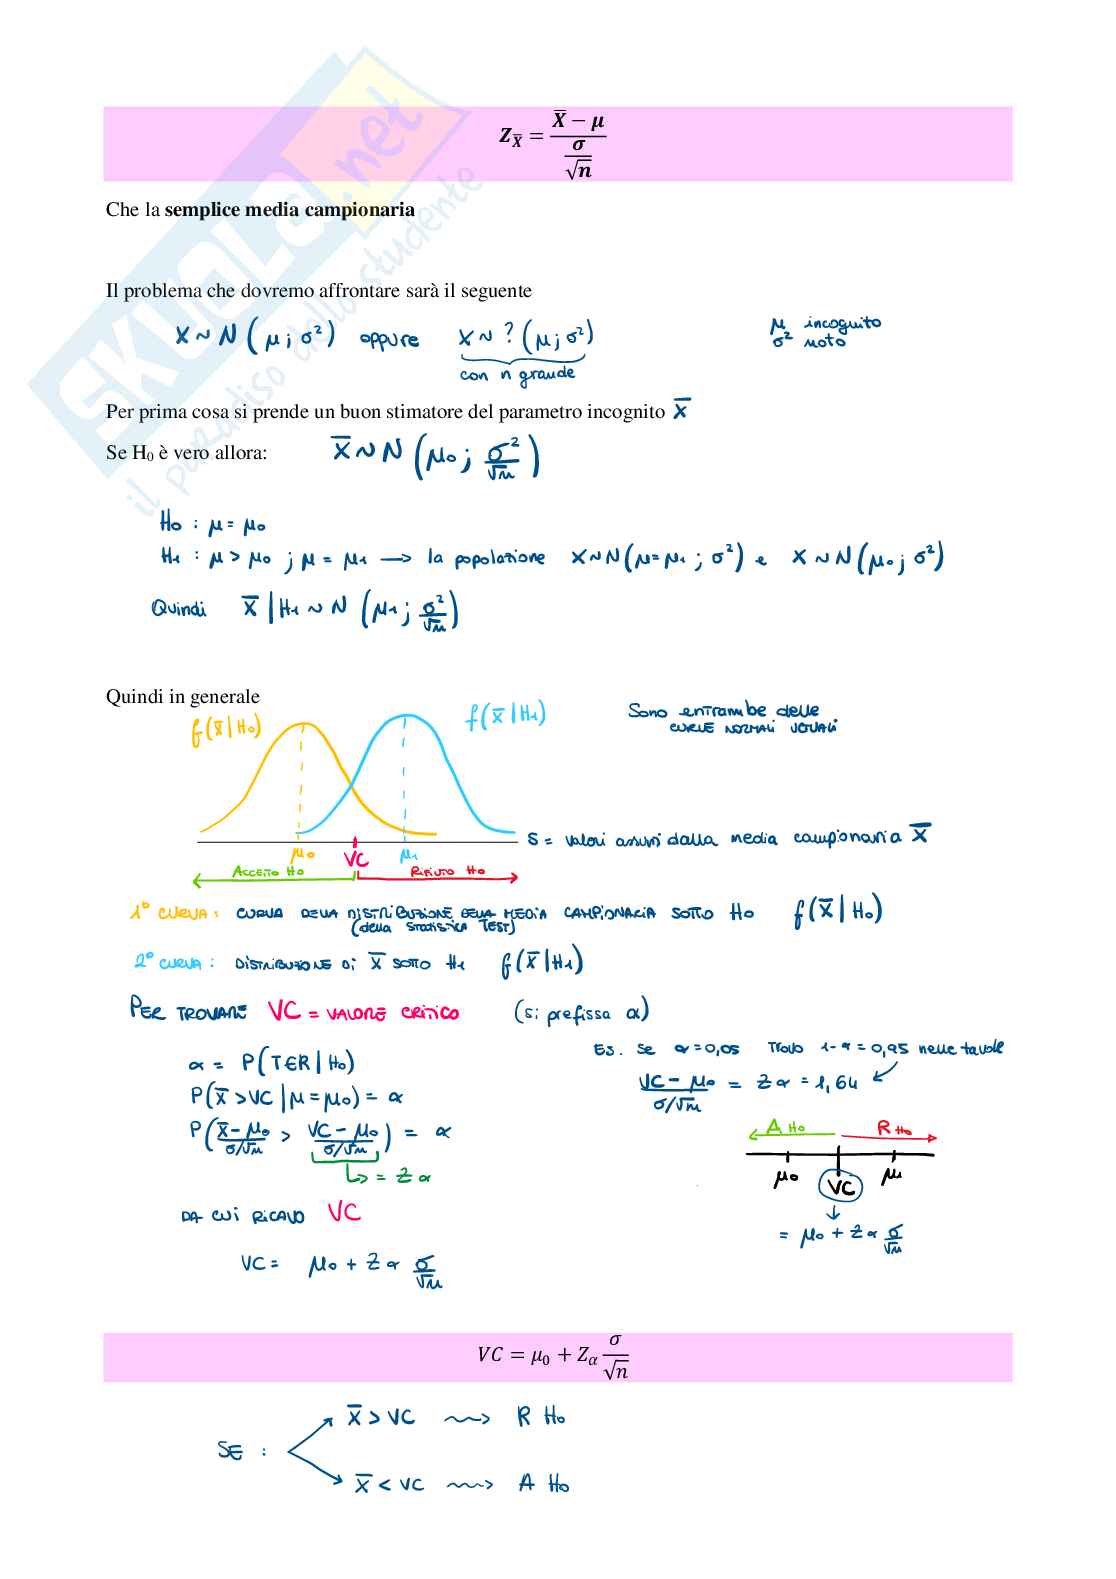 SKUOLA.net
il paradiso dello studente
Z_X̅ = (X̅ − μ) / (σ/√n)
Che la semplice media campionaria
Il problema che dovremo affrontare sarà il seguente
X ~ N (μ ; σ²) oppure X ~ ? (μ ; σ²) μ incognito
con n grande σ² noto
Per prima cosa si prende un buon stimatore del parametro incognito X̅
Se H₀ è vero allora: X̅ ~ N (μ₀ ; σ²/√n)
H₀ : μ = μ₀
H₁ : μ > μ₀ ; μ = μ₁ → la popolazione X ~ N (μ = μ₁ ; σ²) e X ~ N (μ₀ ; σ²)
Quindi X̅ | H₁ ~ N (μ₁ ; σ²/√n)
Quindi in generale
f(X̅ | H₀) f(X̅ | H₁) Sono entrambe delle
CURVE NORMALI UGUALI
S = valori assunti dalla media campionaria X̅
μ₀ VC μ₁
ACCETTO H₀ RIFIUTO H₀
1° CURVA : CURVA DELLA DISTRIBUZIONE DELLA MEDIA CAMPIONARIA SOTTO H₀ f(X̅ | H₀)
(della STATISTICA TEST)
2° CURVA : DISTRIBUZIONE DI X̅ SOTTO H₁ f(X̅ | H₁)
PER TROVARE VC = VALORE CRITICO (si prefissa α)
α = P(T∈R | H₀)
P(X̅ > VC | μ = μ₀) = α
P((X̅ − μ₀)/(σ/√n) > (VC − μ₀)/(σ/√n)) = α
↳ = Zα
DA CUI RICAVO VC
VC = μ₀ + Zα σ/√n
ES. SE α = 0,05 TROVO 1-α = 0,95 nelle tavole
(VC − μ₀)/(σ/√n) = Zα = 1,64
A H₀ R H₀
μ₀ VC μ₁
↓
= μ₀ + Zα σ/√n
VC = μ₀ + Zα σ/√n
X̅ > VC → R H₀
SE :
X̅ < VC → A H₀